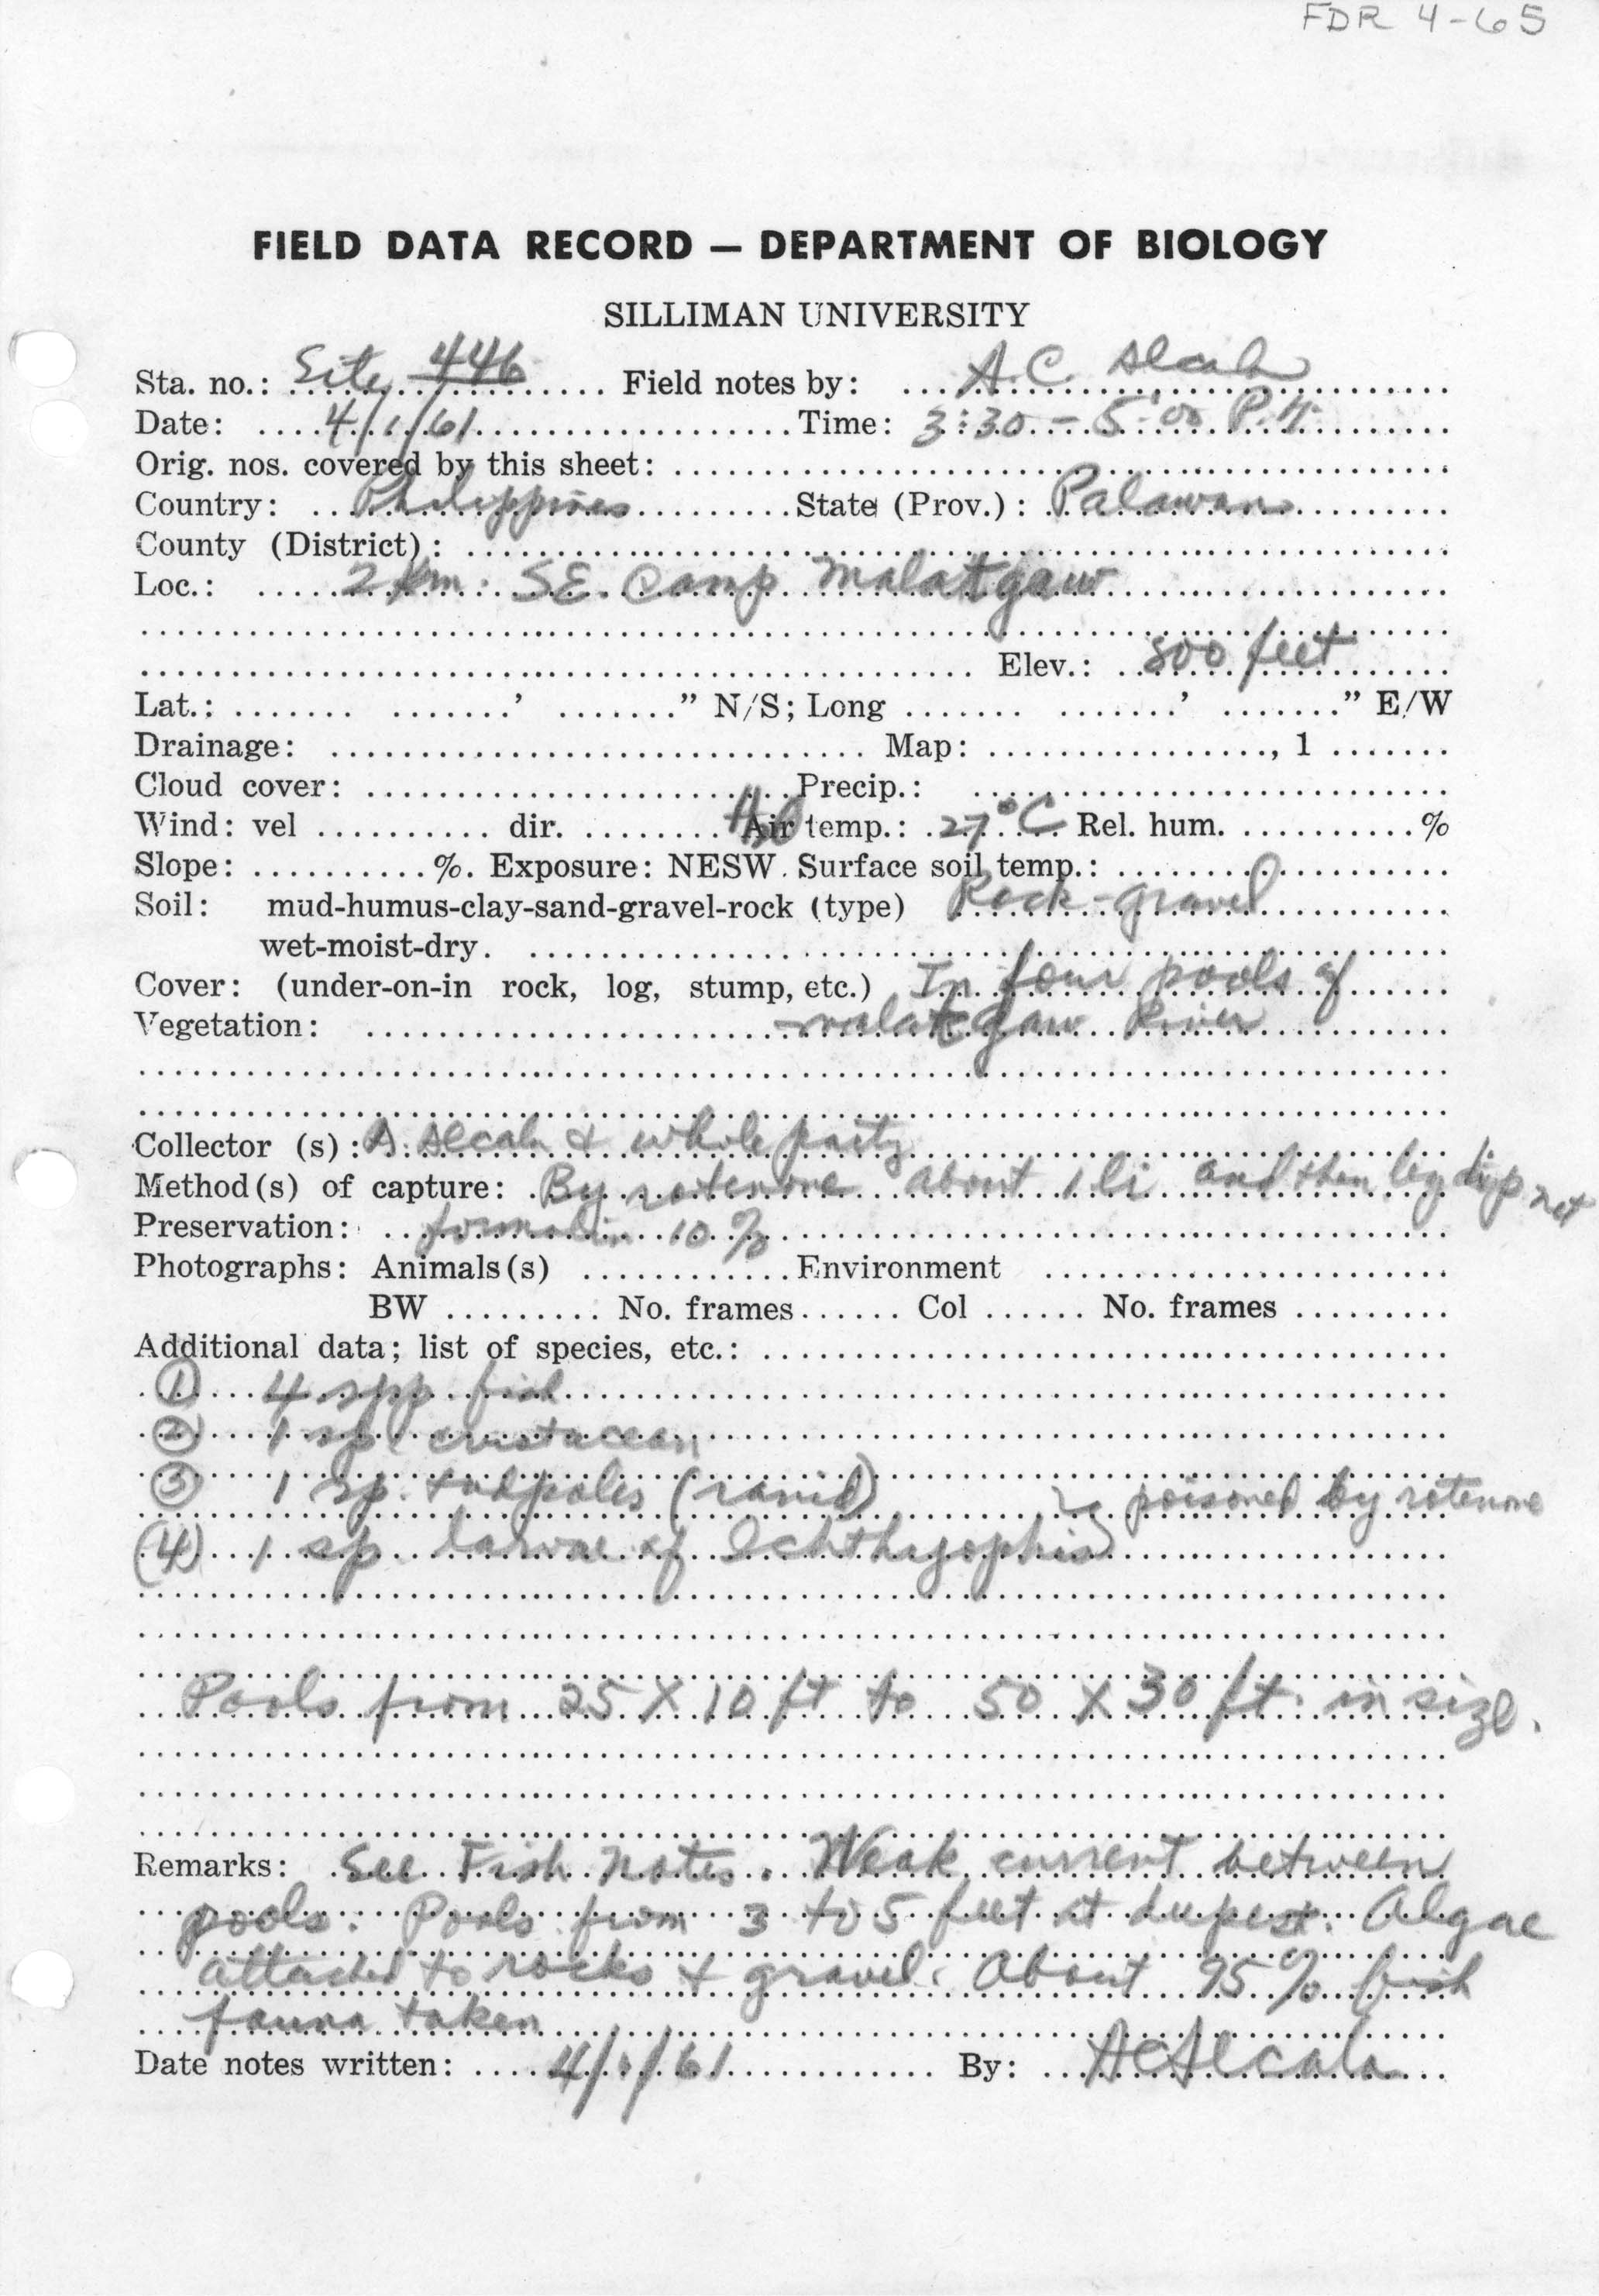 FDR 4-65
FIELD DATA RECORD — DEPARTMENT OF BIOLOGY
SILLIMAN UNIVERSITY
Sta. no.: Site 446 Field notes by: A.C. Alcala
Date: 4/1/61 Time: 3:30 - 5:00 P.M.
Orig. nos. covered by this sheet:
Country: Philippines State (Prov.): Palawan
County (District):
Loc.: 2 km. SE. Camp Malatgaw
Elev.: 800 feet
Lat.: ' " N/S; Long ' " E/W
Drainage: Map: , 1
Cloud cover: Precip.:
Wind: vel dir. H2O Air temp.: 27°C Rel. hum. %
Slope: %. Exposure: NESW. Surface soil temp.:
Soil: mud-humus-clay-sand-gravel-rock (type) Rock-gravel
wet-moist-dry.
Cover: (under-on-in rock, log, stump, etc.) In four pools of
Vegetation: malatgaw River
Collector (s): A. Alcala & whole party
Method(s) of capture: By rotenone about 1 li and then by dip net
Preservation: formalin 10%
Photographs: Animals(s) Environment
BW No. frames Col No. frames
Additional data; list of species, etc.:
① 4 spp fish
② 1 sp crustacean
③ 1 sp. tadpoles (ranid) poisoned by rotenone
(4) 1 sp. larvae of Ichthyophis
Pools from 25 X 10 ft to 50 X 30 ft. in size.
Remarks: See Fish notes. Weak current between
pools. Pools from 3 to 5 feet at deepest. Algae
attached to rocks & gravel. About 95% fish
fauna taken
Date notes written: 4/1/61 By: ACAlcala